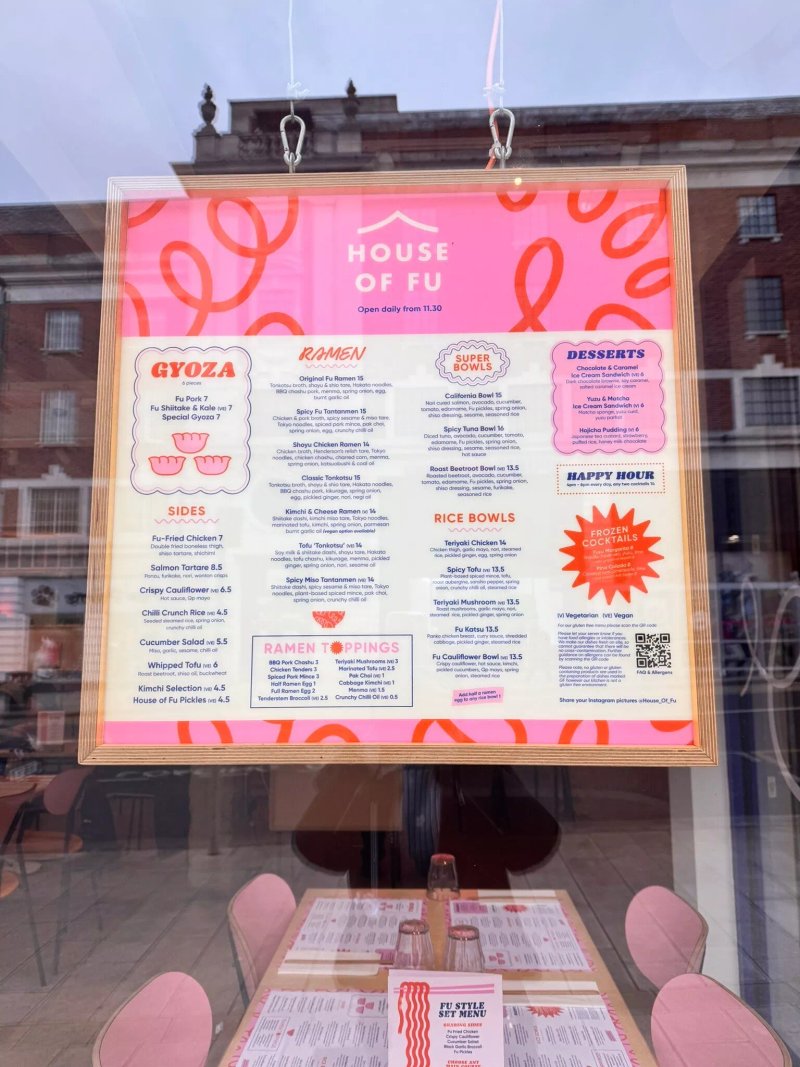 HOUSE
OF FU
Open daily from 11.30
GYOZA
6 pieces
Fu Pork 7
Fu Shiitake & Kale (VE) 7
Special Gyoza 7
SIDES
Fu-Fried Chicken 7
Double fried boneless thigh,
shiso tartare, shichimi
Salmon Tartare 8.5
Ponzu, furikake, nori, wonton crisps
Crispy Cauliflower (VE) 6.5
Hot sauce, Qp mayo
Chilli Crunch Rice (VE) 4.5
Seeded steamed rice, spring onion,
crunchy chilli oil
Cucumber Salad (VE) 5.5
Miso, garlic, sesame, chilli oil
Whipped Tofu (VE) 6
Roast beetroot, shiso oil, buckwheat
Kimchi Selection (VE) 4.5
House of Fu Pickles (VE) 4.5
RAMEN
Original Fu Ramen 15
Tonkotsu broth, shoyu & shio tare, Hakata noodles,
BBQ chashu pork, menma, spring onion, egg,
burnt garlic oil
Spicy Fu Tantanmen 15
Chicken & pork broth, spicy sesame & miso tare,
Tokyo noodles, spiced pork mince, pak choi,
spring onion, egg, crunchy chilli oil
Shoyu Chicken Ramen 14
Chicken broth, Henderson's relish tare, Tokyo
noodles, chicken chashu, charred corn, menma,
spring onion, katsuobushi & coal oil
Classic Tonkotsu 15
Tonkotsu broth, shoyu & shio tare, Hakata noodles,
BBQ chashu pork, kikurage, spring onion,
egg, pickled ginger, nori, negi oil
Kimchi & Cheese Ramen (V) 14
Shiitake dashi, kimchi miso tare, Tokyo noodles,
marinated tofu, kimchi, spring onion, parmesan
burnt garlic oil (vegan option available)
Tofu 'Tonkotsu' (VE) 14
Soy milk & shiitake dashi, shoyu tare, Hakata
noodles, tofu chashu, kikurage, menma, pickled
ginger, spring onion, nori, sesame oil
Spicy Miso Tantanmen (VE) 14
Shiitake dashi, spicy sesame & miso tare, Tokyo
noodles, plant-based spiced mince, pak choi,
spring onion, crunchy chilli oil
RAMEN TOPPINGS
BBQ Pork Chashu 3
Chicken Tenders 3
Spiced Pork Mince 3
Half Ramen Egg 1
Full Ramen Egg 2
Tenderstem Broccoli (VE) 2.5
Teriyaki Mushrooms (VE) 3
Marinated Tofu (VE) 2.5
Pak Choi (VE) 1
Cabbage Kimchi (VE) 1
Menma (VE) 1.5
Crunchy Chilli Oil (VE) 0.5
SUPER
BOWLS
California Bowl 15
Nori cured salmon, avocado, cucumber,
tomato, edamame, Fu pickles, spring onion,
shiso dressing, sesame, seasoned rice
Spicy Tuna Bowl 16
Diced tuna, avocado, cucumber, tomato,
edamame, Fu pickles, spring onion,
shiso dressing, sesame, seasoned rice,
hot sauce
Roast Beetroot Bowl (VE) 13.5
Roasted beetroot, avocado, cucumber,
tomato, edamame, Fu pickles, spring onion,
shiso dressing, sesame, furikake,
seasoned rice
RICE BOWLS
Teriyaki Chicken 14
Chicken thigh, garlic mayo, nori, steamed
rice, pickled ginger, egg, spring onion
Spicy Tofu (VE) 13.5
Plant-based spiced mince, tofu,
roast aubergine, sansho pepper, spring
onion, crunchy chilli oil, steamed rice
Teriyaki Mushroom (VE) 13.5
Roast mushrooms, garlic mayo, nori,
steamed rice, pickled ginger, spring onion
Fu Katsu 13.5
Panko chicken breast, curry sauce, shredded
cabbage, pickled ginger, steamed rice
Fu Cauliflower Bowl (VE) 13.5
Crispy cauliflower, hot sauce, kimchi,
pickled cucumbers, Qp mayo, spring
onion, steamed rice
Add half a ramen
egg to any rice bowl 1
DESSERTS
Chocolate & Caramel
Ice Cream Sandwich (VE) 6
Dark chocolate brownie, soy caramel,
salted caramel ice cream
Yuzu & Matcha
Ice Cream Sandwich (V) 6
Matcha sponge, yuzu curd,
yuzu parfait
Hojicha Pudding (V) 6
Japanese tea custard, strawberry,
puffed rice, honey milk chocolate
HAPPY HOUR
4pm - 6pm every day, any two cocktails 14
FROZEN
COCKTAILS
Yuzu Margarita 8
Pina Colada 8
(V) Vegetarian (VE) Vegan
For our gluten free menu please scan the QR code
Please let your server know if you
have food allergies or intolerances.
FAQ & Allergens
Share your Instagram pictures @House_Of_Fu
FU STYLE
SET MENU
SHARING SIDES
Fu Fried Chicken
Crispy Cauliflower
Cucumber Salad
Black Garlic Broccoli
Fu Pickles
CHOOSE ANY